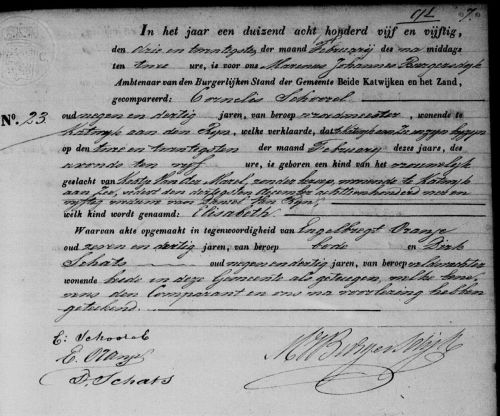 91 7.
In het jaar een duizend acht honderd vijf en vijftig,
den drie en twintigste, der maand Februarij des na middags
ten ure, is voor ons Marinus Johannes
Ambtenaar van den Burgerlijken Stand der Gemeente Beide Katwijken en het Zand,
gecompareerd: Cornelis Schoorel
No. 23
oud negen en dertig jaren, van beroep, wonende te
Katwijk aan den Rijn, welke verklaarde, dat
op den twee en twintigsten der maand Februarij dezes jaars, des
avonds ten vijf ure, is geboren een kind van het vrouwelijk
geslacht van van der Marel, zonder beroep, wonende te Katwijk
aan Zee, sedert den December achttienhonderd
vijftig weduwe van
welk kind wordt genaamd: Elisabeth
Waarvan akte opgemaakt in tegenwoordigheid van Engelbregt Oranje
oud zeven en dertig jaren, van beroep bode en Dirk
Schats oud negen en dertig jaren, van beroep veldwachter
wonende beide in deze Gemeente als getuigen, welke
den Comparant en ons na voorlezing hebben
geteekend.
C: Schoorel
E. Oranje
D. Schats